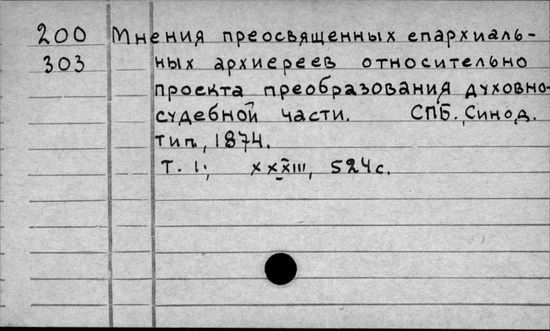 200 Мнения преосвященных епархиаль-
303 ных архиереев относительно
проекта преобразования духовно-
судебной части. СПБ., Синод.
тип., 1874.
Т. 1; XXXIII, 524с.